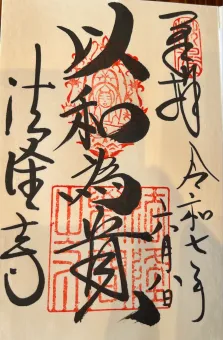 奉拝
令和七年
六月八日
以和為貴
法隆寺